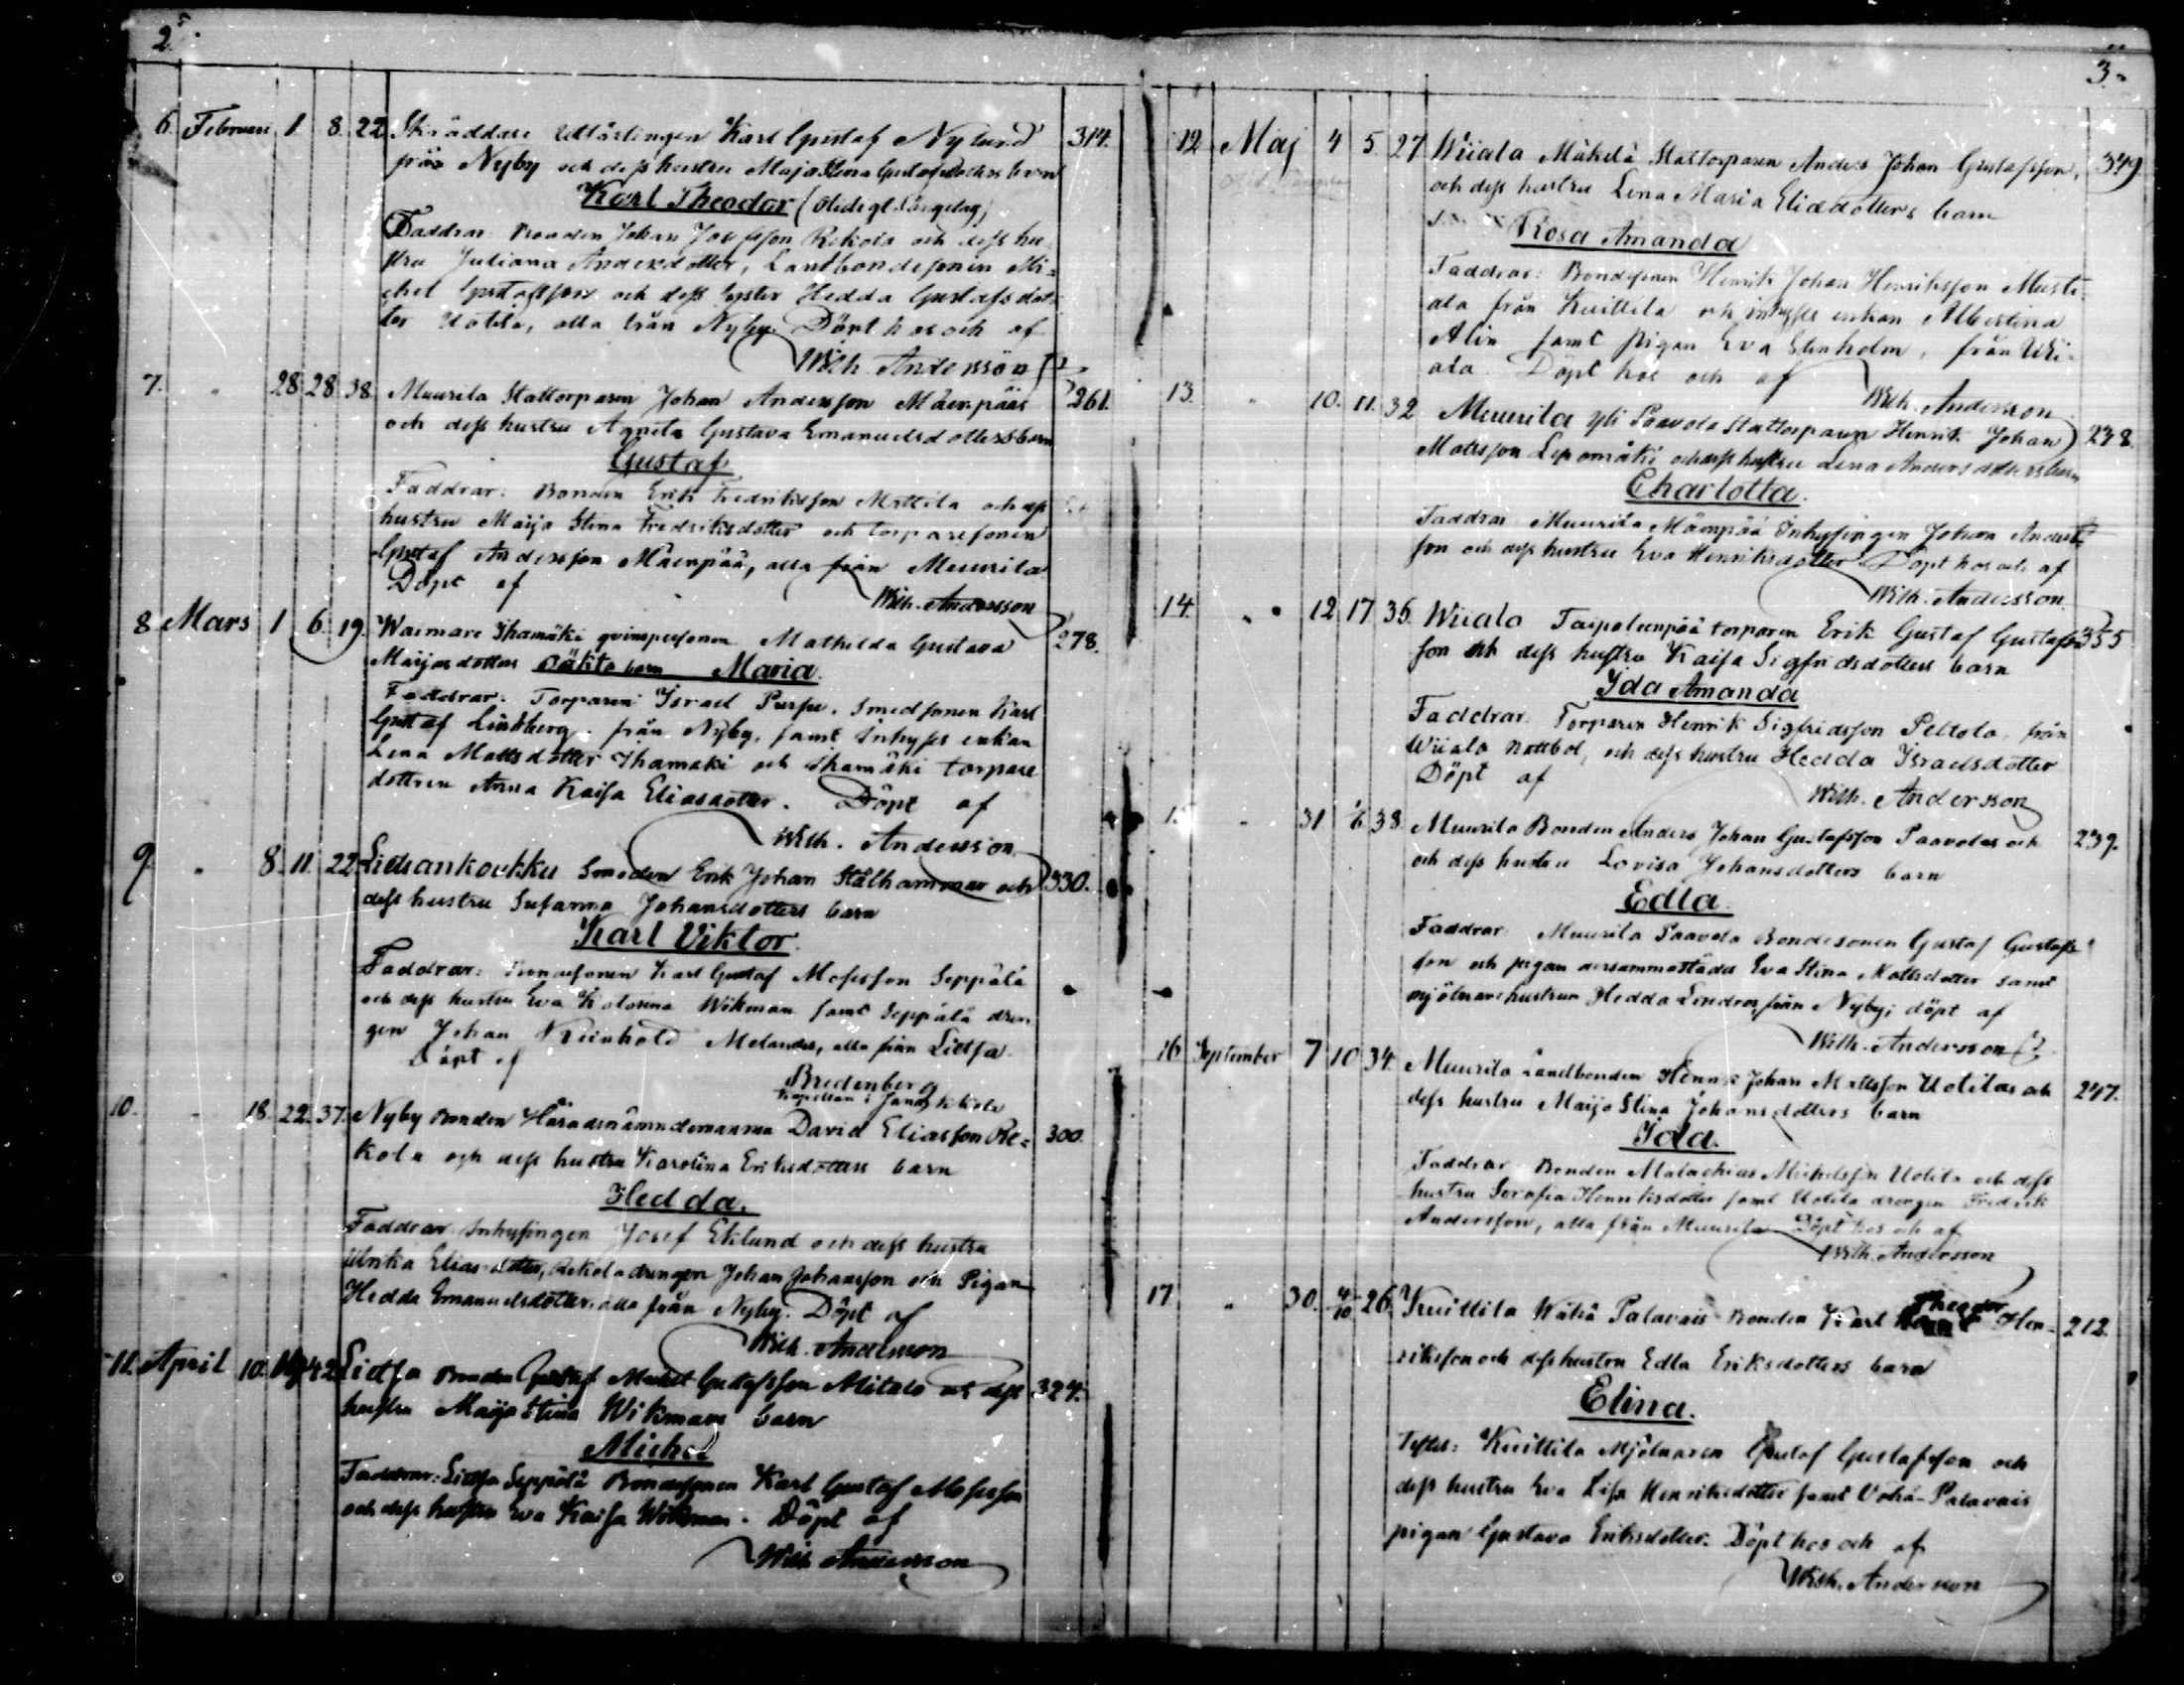 2.
6. Februari 1. 8. 22 Skräddare Lärlingen Karl Gustaf Nylund 314.
från Nyby och dess hustru Maja Stina Gustafsdotters barn
Karl Theodor
Faddrar: Bonden Johan Josefsson Rekola och dess hu-
stru Juliana Andersdotter, Lantbondesonen Mi-
chel Gustafsson och dess syster Hedda Gustafsdot-
ter Uotila, alla från Nyby. Döpt hos och af
Wilh. Andersson
7. " 28 28 38 Muurila Stattorparen Johan Andersson Mäenpääs 261.
och dess hustru Agneta Gustava Emanuelsdotters barn
Gustaf
Faddrar: Bonden Erik Fredriksson Mattila och dess
hustru Maija Stina Fredriksdotter och torparesonen
Gustaf Andersson Mäenpää, alla från Muurila
Döpt af
Wilh. Andersson
8 Mars 1 6. 19. Waimare Ihamäki qvinspersonen Mathilda Gustava 278.
Maijasdotters oäkta barn Maria.
Faddrar: Torparen Israel Pursu, Smedsonen Karl
Gustaf Lindberg från Nyby, samt Inhyses enkan
Lena Mattsdotter Ihamäki och Ihamäki torpare
dottren Anna Kaisa Eliasdotter. Döpt af
Wilh. Andersson
9. " 8. 11. 22 Liedsankoukku Smeden Erik Johan Stålhammar och 330.
dess hustru Susanna Johansdotters barn
Karl Viktor.
Faddrar: Bondesonen Karl Gustaf Mosesson Seppälä
och dess hustru Eva Katarina Wikman samt Seppälä dren
gen Johan Reinhold Melander, alla från Liedsa.
Döpt af
Bredenberg
Kapellan i
10. " 18. 22. 37. Nyby Bonden Häradsnämndemannen David Eliasson Re= 300.
kola och dess hustru Karolina Eriksdotters barn
Hedda.
Faddrar: Inhysingen Josef Eklund och dess hustru
Ulrika Eliasdotter, Rekola drengen Johan Johansson och Pigan
Hedda Emanuelsdotter, alla från Nyby. Döpt af
Wilh. Andersson
11. April 10. 42 Liedsa Bonden Gustaf Michel Gustafsson Mitala och dess 324.
hustru Maija Stina Wikmans barn
Michel
Faddrar: Liedsa Seppälä Bondesonen Karl Gustaf Mosesson
och dess hustru Eva Kaisa Wikman. Döpt af
Wilh. Andersson
3.
12. Maj 4 5. 27 Wiiala Mäkelä Stattorparen Anders Johan Gustafsson, 349.
och dess hustru Lena Maria Elidotters barn
Rosa Amanda
Faddrar: Bondesonen Henrik Johan Henriksson Musti-
ala från Kuittila och inhyses enkan Albertina
Alin samt pigan Eva Stenholm, från Wii-
ala. Döpt hos och af
Wilh. Andersson
13. " 10. 11. 32 Muurila Yli Paavola Stattorparen Henrik Johan 238.
Matsson Lepomäki och dess hustru Lena Andersdotters barn
Charlotta.
Faddrar: Muurila Mäenpää Inhysingen Johan Anders-
son och dess hustru Eva Henriksdotter. Döpt hos och af
Wilh. Andersson
14. " 12 17 36. Wiiala Taipaleenpää torparen Erik Gustaf Gustafs- 355
son och dess hustru Kaisa Sigfridsdotters barn
Ida Amanda
Faddrar: Torparen Henrik Sigfridsson Peltola, från
Wiiala Nottbol, och dess hustru Hedda Israelsdotter
Döpt af
Wilh. Andersson
15. " 31 6. 38. Muurila Bonden Anders Johan Gustafsson Paavolas och 239.
och dess hustru Lovisa Johansdotters barn
Edla.
Faddrar: Muurila Paavola Bondesonen Gustaf Gustafs-
son och pigan dersammastädes Eva Stina Mattsdotter samt
mjölnarehustrun Hedda Lindros, från Nyby; döpt af
Wilh. Andersson
16 September 7 10 34. Muurila Landbonden Henrik Johan Mattsson Uotilas och 247.
dess hustru Maija Stina Johansdotters barn
Ida.
Faddrar: Bonden Malachias Michelsson Uotila och dess
hustru Serafia Henriksdotter samt Uotila drengen Fredrik
Andersson, alla från Muurila. Döpt hos och af
Wilh. Andersson
17 " 30. 4/10 26. Kuittila Wähä Palavais Bonden Karl Theodor Hen- 212.
riksson och dess hustru Edla Eriksdotters barn
Elina.
Testes: Kuittila Mjölnaren Gustaf Gustafsson och
dess hustru Eva Lisa Henriksdotter samt Vähä-Palavais
pigan Gustava Eriksdotter. Döpt hos och af
Wilh. Andersson